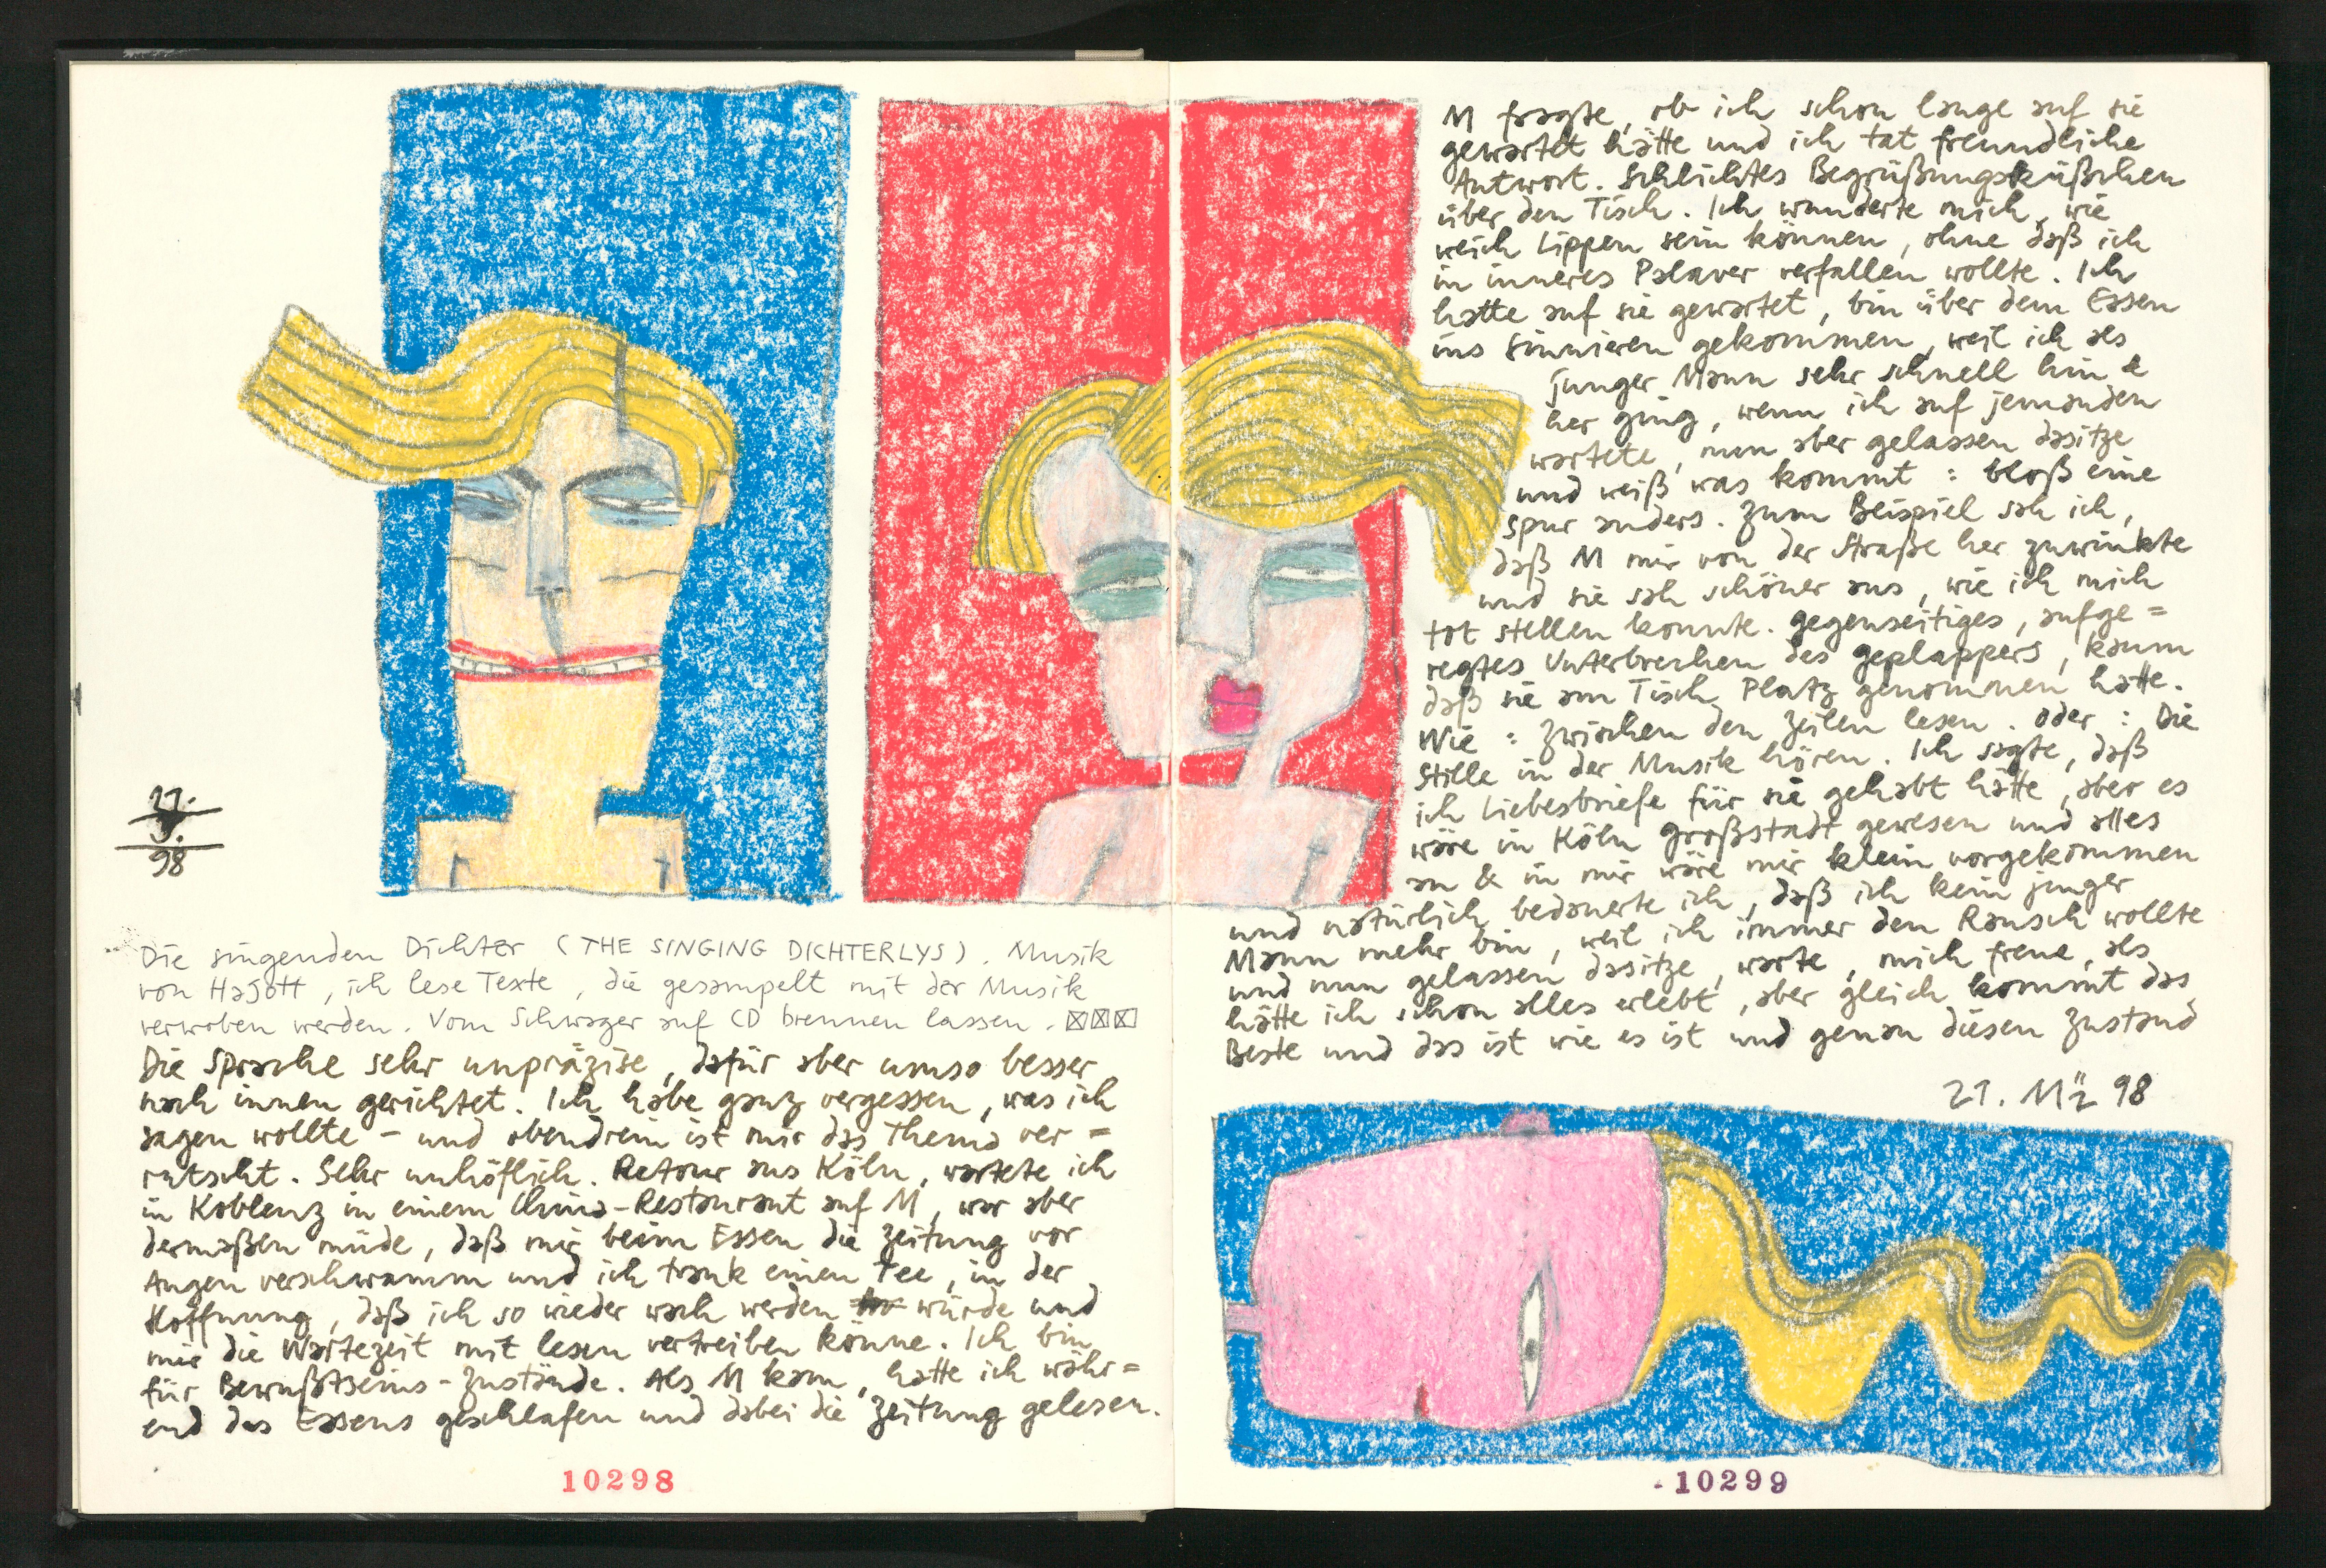 11.
3.
98
Die singenden Dichter (THE SINGING DICHTERLYS). Musik
von Hagott, ich lese Texte, die gesampelt mit der Musik
verwoben werden. Vom Schwager auf CD brennen lassen.
Die Sprache sehr unpräzise, dafür aber umso besser
nach innen gerichtet. Ich habe ganz vergessen, was ich
sagen wollte – und obendrein ist mir das Thema ver=
rutscht. Sehr unhöflich. Retour aus Köln, wartete ich
in Koblenz in einem China-Restaurant auf M, war aber
dermaßen müde, daß mir beim Essen die Zeitung vor
Augen verschwamm und ich trank einen Tee, in der
Hoffnung, daß ich so wieder wach werden würde und
mir die Wartezeit mit lesen vertreiben könne. Ich bin
für Bewußtseins-Zustände. Als M kam, hatte ich währ=
end das Essens geschlafen und dabei die Zeitung gelesen.
10298
M fragte, ob ich schon lange auf sie
gewartet hätte und ich tat freundliche
Antwort. Schlichtes Begrüßungsküßchen
über den Tisch. Ich wunderte mich, wie
weich Lippen sein können, ohne daß ich
in inneres Palaver verfallen wollte. Ich
hatte auf sie gewartet, bin über dem Essen
ins Sinnieren gekommen, weil ich als
junger Mann sehr schnell hin &
her ging, wenn ich auf jemanden
wartete, nun aber gelassen dasitze
und weiß was kommt: bloß eine
Spur anders. Zum Beispiel sah ich,
daß M mir von der Straße her zuwinkte
und sie sah schöner aus, wie ich mich
tot stellen konnte. Gegenseitiges, aufge=
regtes Unterbrechen des Geplappers, kaum
daß sie am Tisch Platz genommen hatte.
Wie: zwischen den Zeilen lesen. Oder: Die
Stille in der Musik hören. Ich sagte, daß
ich Liebesbriefe für sie gehabt hätte, aber es
wäre in Köln Großstadt gewesen und alles
an & in mir wäre mir klein vorgekommen
und natürlich bedauerte ich, daß ich kein junger
Mann mehr bin, weil ich immer den Rausch wollte
und nun gelassen dasitze, warte, mich freue, als
hätte ich schon alles erlebt, aber gleich kommt das
Beste und das ist wie es ist und genau diesen Zustand
21. Mäz 98
10299